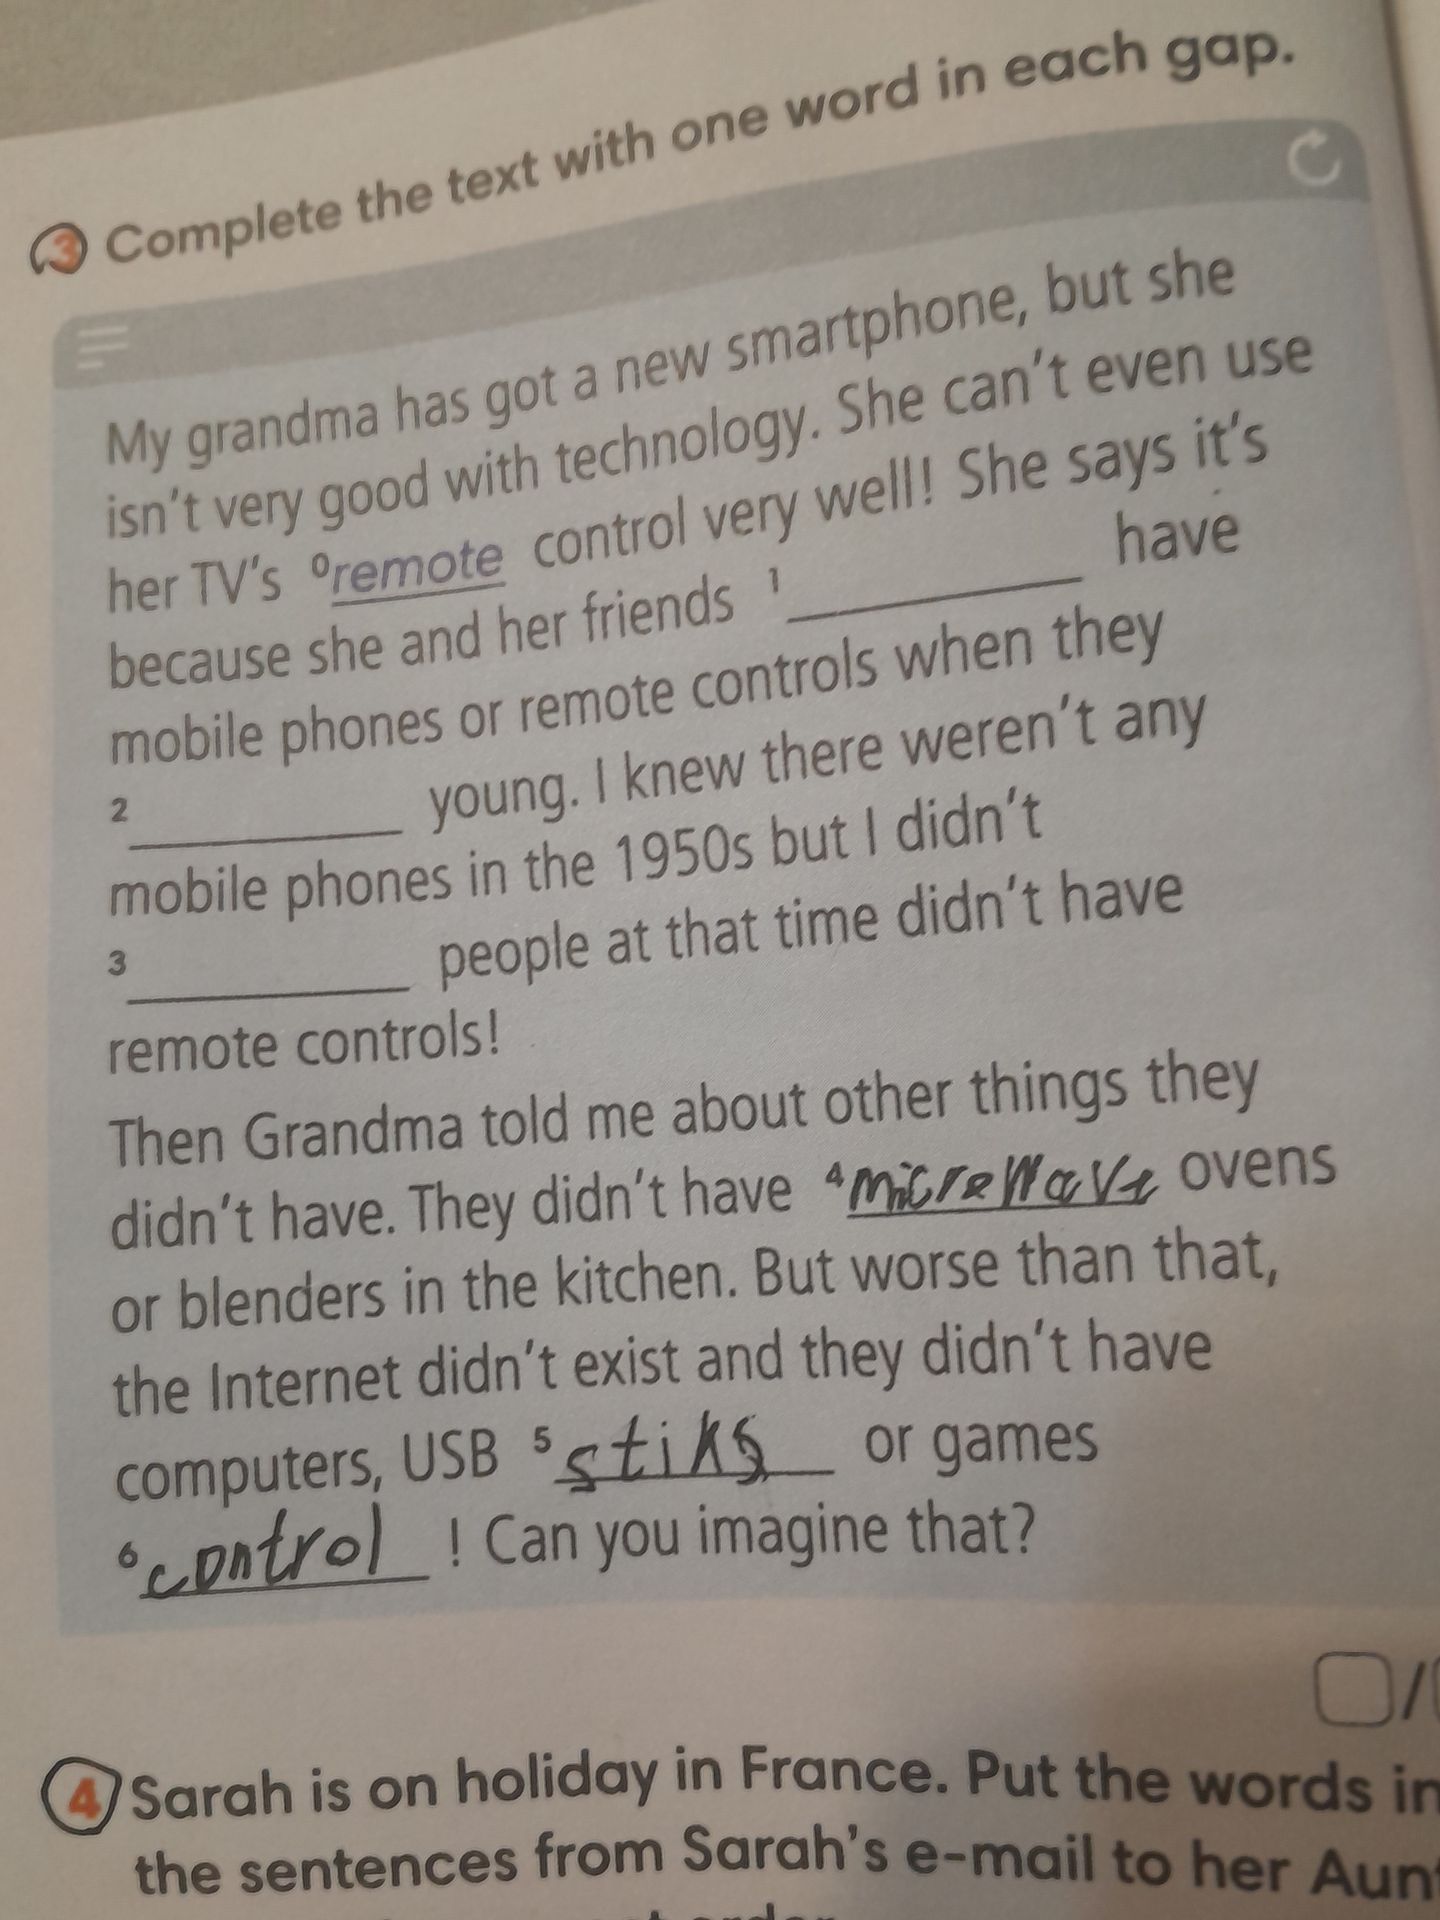 3 Complete the text with one word in each gap.
My grandma has got a new smartphone, but she
isn't very good with technology. She can't even use
her TV's 0 remote control very well! She says it's
because she and her friends 1 ________ have
mobile phones or remote controls when they
2 ________ young. I knew there weren't any
mobile phones in the 1950s but I didn't
3 ________ people at that time didn't have
remote controls!
Then Grandma told me about other things they
didn't have. They didn't have 4 micrewave ovens
or blenders in the kitchen. But worse than that,
the Internet didn't exist and they didn't have
computers, USB 5 stiks or games
6 control ! Can you imagine that?
/
4 Sarah is on holiday in France. Put the words in
the sentences from Sarah's e-mail to her Aunt
order